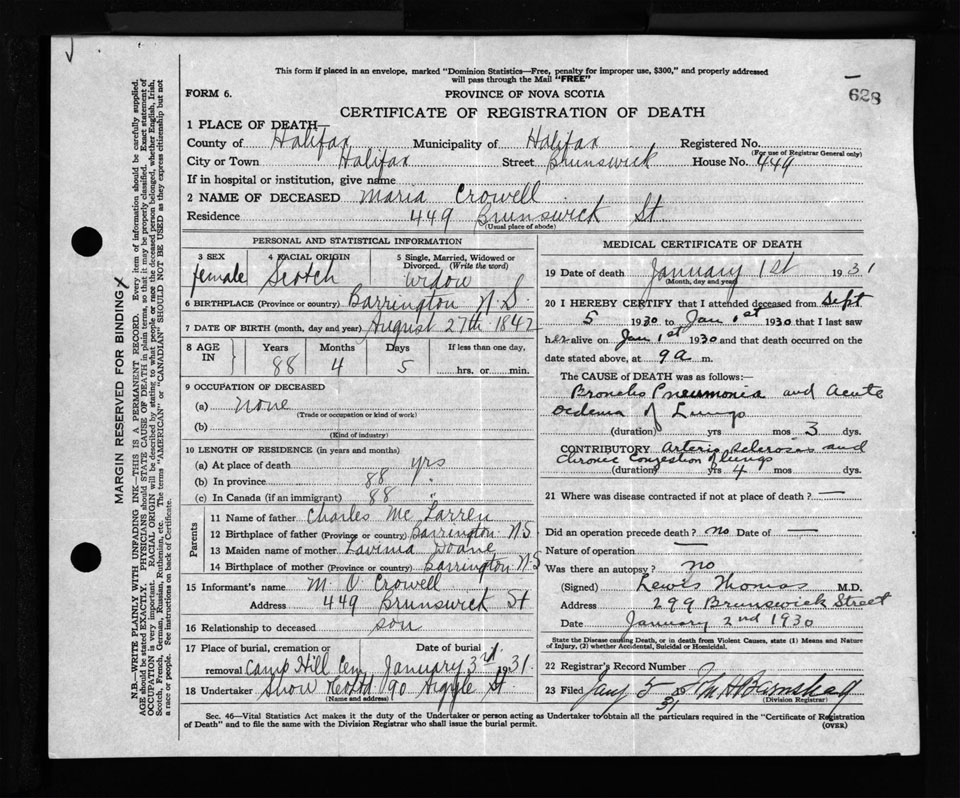 This form if placed in an envelope, marked "Dominion Statistics—Free, penalty for improper use, $300," and properly addressed
will pass through the Mail "FREE"
628
FORM 6.
PROVINCE OF NOVA SCOTIA
CERTIFICATE OF REGISTRATION OF DEATH
1 PLACE OF DEATH—
County of Halifax Municipality of Halifax Registered No.
(For use of Registrar General only)
City or Town Halifax Street Brunswick House No. 449
If in hospital or institution, give name
2 NAME OF DECEASED Maria Crowell
Residence 449 Brunswick St
(Usual place of abode)
PERSONAL AND STATISTICAL INFORMATION
3 SEX 4 RACIAL ORIGIN 5 Single, Married, Widowed or
Divorced. (Write the word)
female Scotch Widow
6 BIRTHPLACE (Province or country) Barrington N.S.
7 DATE OF BIRTH (month, day and year) August 27th 1842
8 AGE IN Years Months Days If less than one day,
88 4 5 hrs. or min.
9 OCCUPATION OF DECEASED
(a) none
(Trade or occupation or kind of work)
(b)
(Kind of industry)
10 LENGTH OF RESIDENCE (in years and months)
(a) At place of death yrs
(b) In province 88 "
(c) In Canada (if an immigrant) 88 "
Parents
11 Name of father Charles Mc Larren
12 Birthplace of father (Province or country) Barrington N.S
13 Maiden name of mother Lavinia Doane
14 Birthplace of mother (Province or country) Barrington N.S
15 Informant's name M. O. Crowell
Address 449 Brunswick St
16 Relationship to deceased son
17 Place of burial, cremation or Date of burial
removal Camp Hill Cem January 3rd 1931.
18 Undertaker Snow & Co Ltd 90 Argyle St
(Name and address)
MEDICAL CERTIFICATE OF DEATH
19 Date of death January 1st 1931
(Month, day and year)
20 I HEREBY CERTIFY that I attended deceased from Sept
5 1930 to Jan 1st 1930 that I last saw
her alive on Jan 1st 1930 and that death occurred on the
date stated above, at 9 a m.
The CAUSE OF DEATH was as follows:
Broncho Pneumonia and Acute
oedema of Lungs
(duration) yrs mos 3 dys.
CONTRIBUTORY Arterio Sclerosis and
Chronic Congestion of lungs
(duration) yrs 4 mos dys.
21 Where was disease contracted if not at place of death? —
Did an operation precede death? no Date of —
Nature of operation —
Was there an autopsy? no
(Signed) Lewis Thomas M.D.
Address 299 Brunswick Street
Date January 2nd 1930
State the Disease causing Death, or in death from Violent Causes, state (1) Means and Nature
of Injury, (2) whether Accidental, Suicidal or Homicidal.
22 Registrar's Record Number
23 Filed Jany 5 31
(Division Registrar)
Sec. 46—Vital Statistics Act makes it the duty of the Undertaker or person acting as Undertaker to obtain all the particulars required in the "Certificate of Registration
of Death" and to file the same with the Division Registrar who shall issue the burial permit.
(OVER)
MARGIN RESERVED FOR BINDING
N.B.—WRITE PLAINLY WITH UNFADING INK—THIS IS A PERMANENT RECORD. Every item of information should be carefully supplied.
AGE should be stated EXACTLY. PHYSICIANS should STATE CAUSE OF DEATH in plain terms, so that it may be properly classified. Exact statement of
OCCUPATION is very important. RACIAL ORIGIN will be described by stating to what people or race the deceased person belonged, whether English, Irish,
Scotch, French, German, Russian, Ruthenian, etc. The terms "AMERICAN" or "CANADIAN" SHOULD NOT BE USED as they express citizenship but not
a race or people. See instructions on back of Certificate.